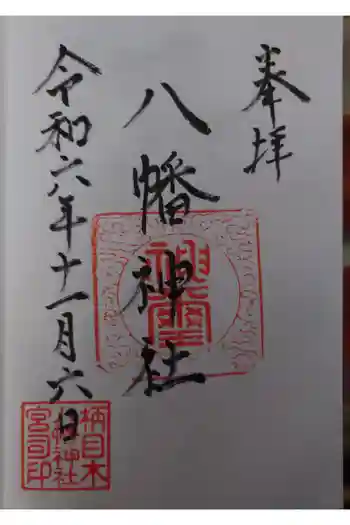 奉拝
八幡神社
令和六年十一月六日
柄目木
神社
宮司印